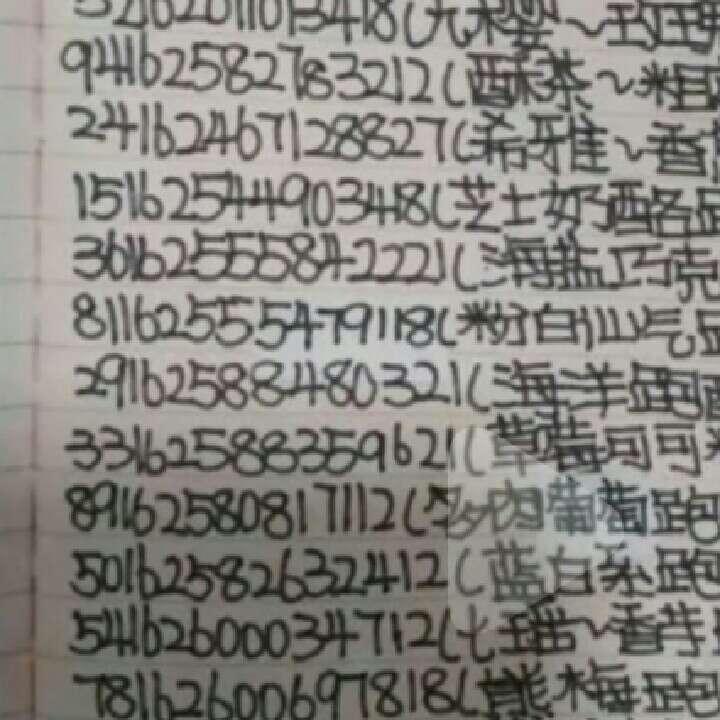 94162582783212(酥茶~粗
24162467128827(希雅~香
15162544903418(芝士奶酪
36162555842221(海盐巧克
81162555479118(粉白仙气
29162588480321(海洋跑
33162588359621(草莓可可
89162580817112(多肉葡萄跑
50162582632412(蓝白系跑
54162600034712(七瑶~香芋
78162600697818(熊梅跑